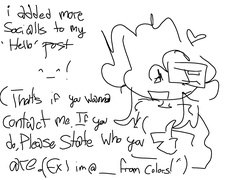 i added more
Socialls to my
"Hello" post
^_^!
(That's if you wanna
contact me. If you
do, Please State who you
are. (Ex) im @ __ from Colors!^)